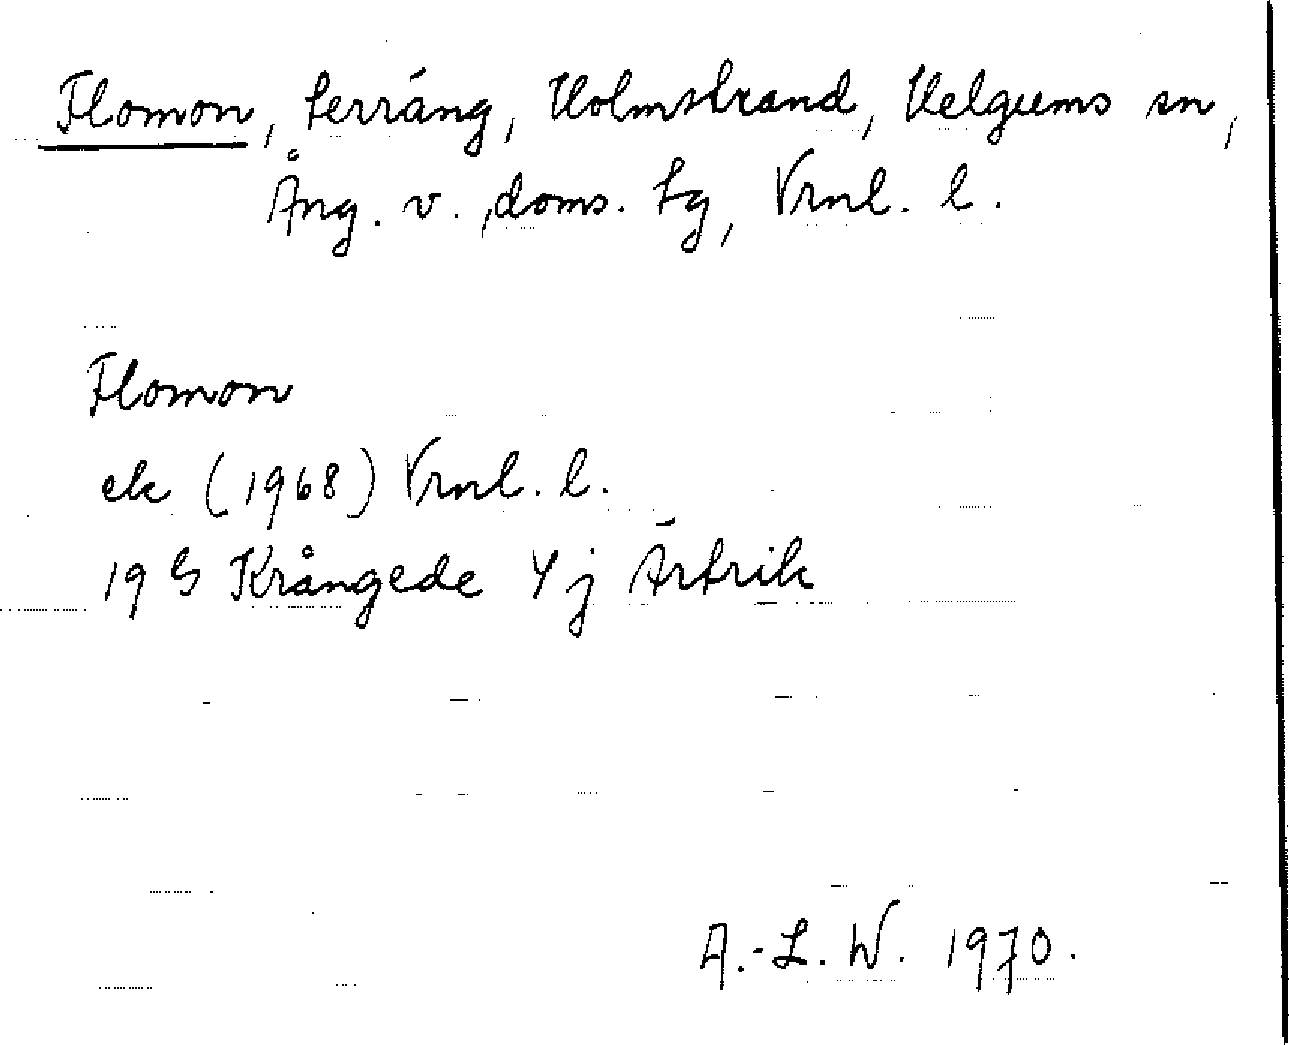 Flomon, terräng, Holmstrand, Helgums sn,
Ång. v. doms. tg, Vrnl. l.
Flomon
ek (1968) Vrnl. l.
19 G Krångede 4 j Ärtrik
A.-L. W. 1970.